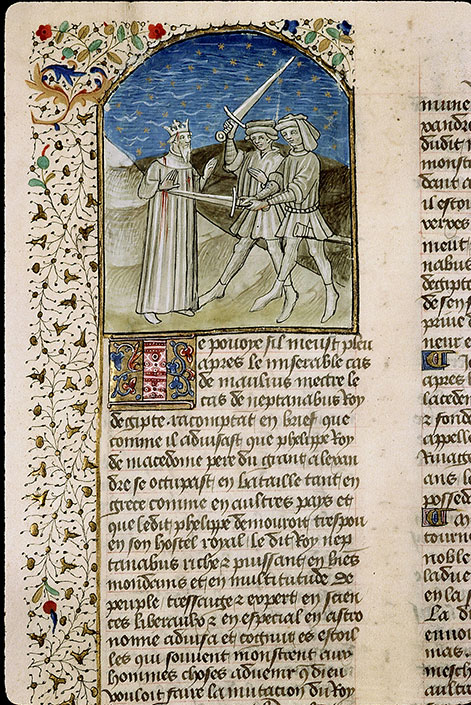 Je pouoye sil meust pleu
apres le miserable cas
de maulius mectre le
cas de neptanabus Roy
degipte racomptat en brief que
comme il aduisast que phelippe Roy
de macedonne pere du grant alexan
dre se occupast en bataille tant en
grece comme en aultres pays et
que ledit phelippe demouroit trespou
en son hostel royal. le dit Roy nep
tanabus riche et puissant en biens
mondains et en multitude de
peuple tressauge et expert en scien
ces liberaulx et en especial en astro
nomie aduisa et cognut es estoil
les qui souuent monstrent aux
hommes choses aduenir que dieu
vouloit faire la mutation du Roy
mune
xandre
dudit
monst
dant a
il estoi
verues
meut
nabus
degipte
de sen
priue
neur e
apres
lacedem
fond
appelle
ans
possed
tourn
noble
ladue
en la
La di
ennoi
mas
mesch
aultr